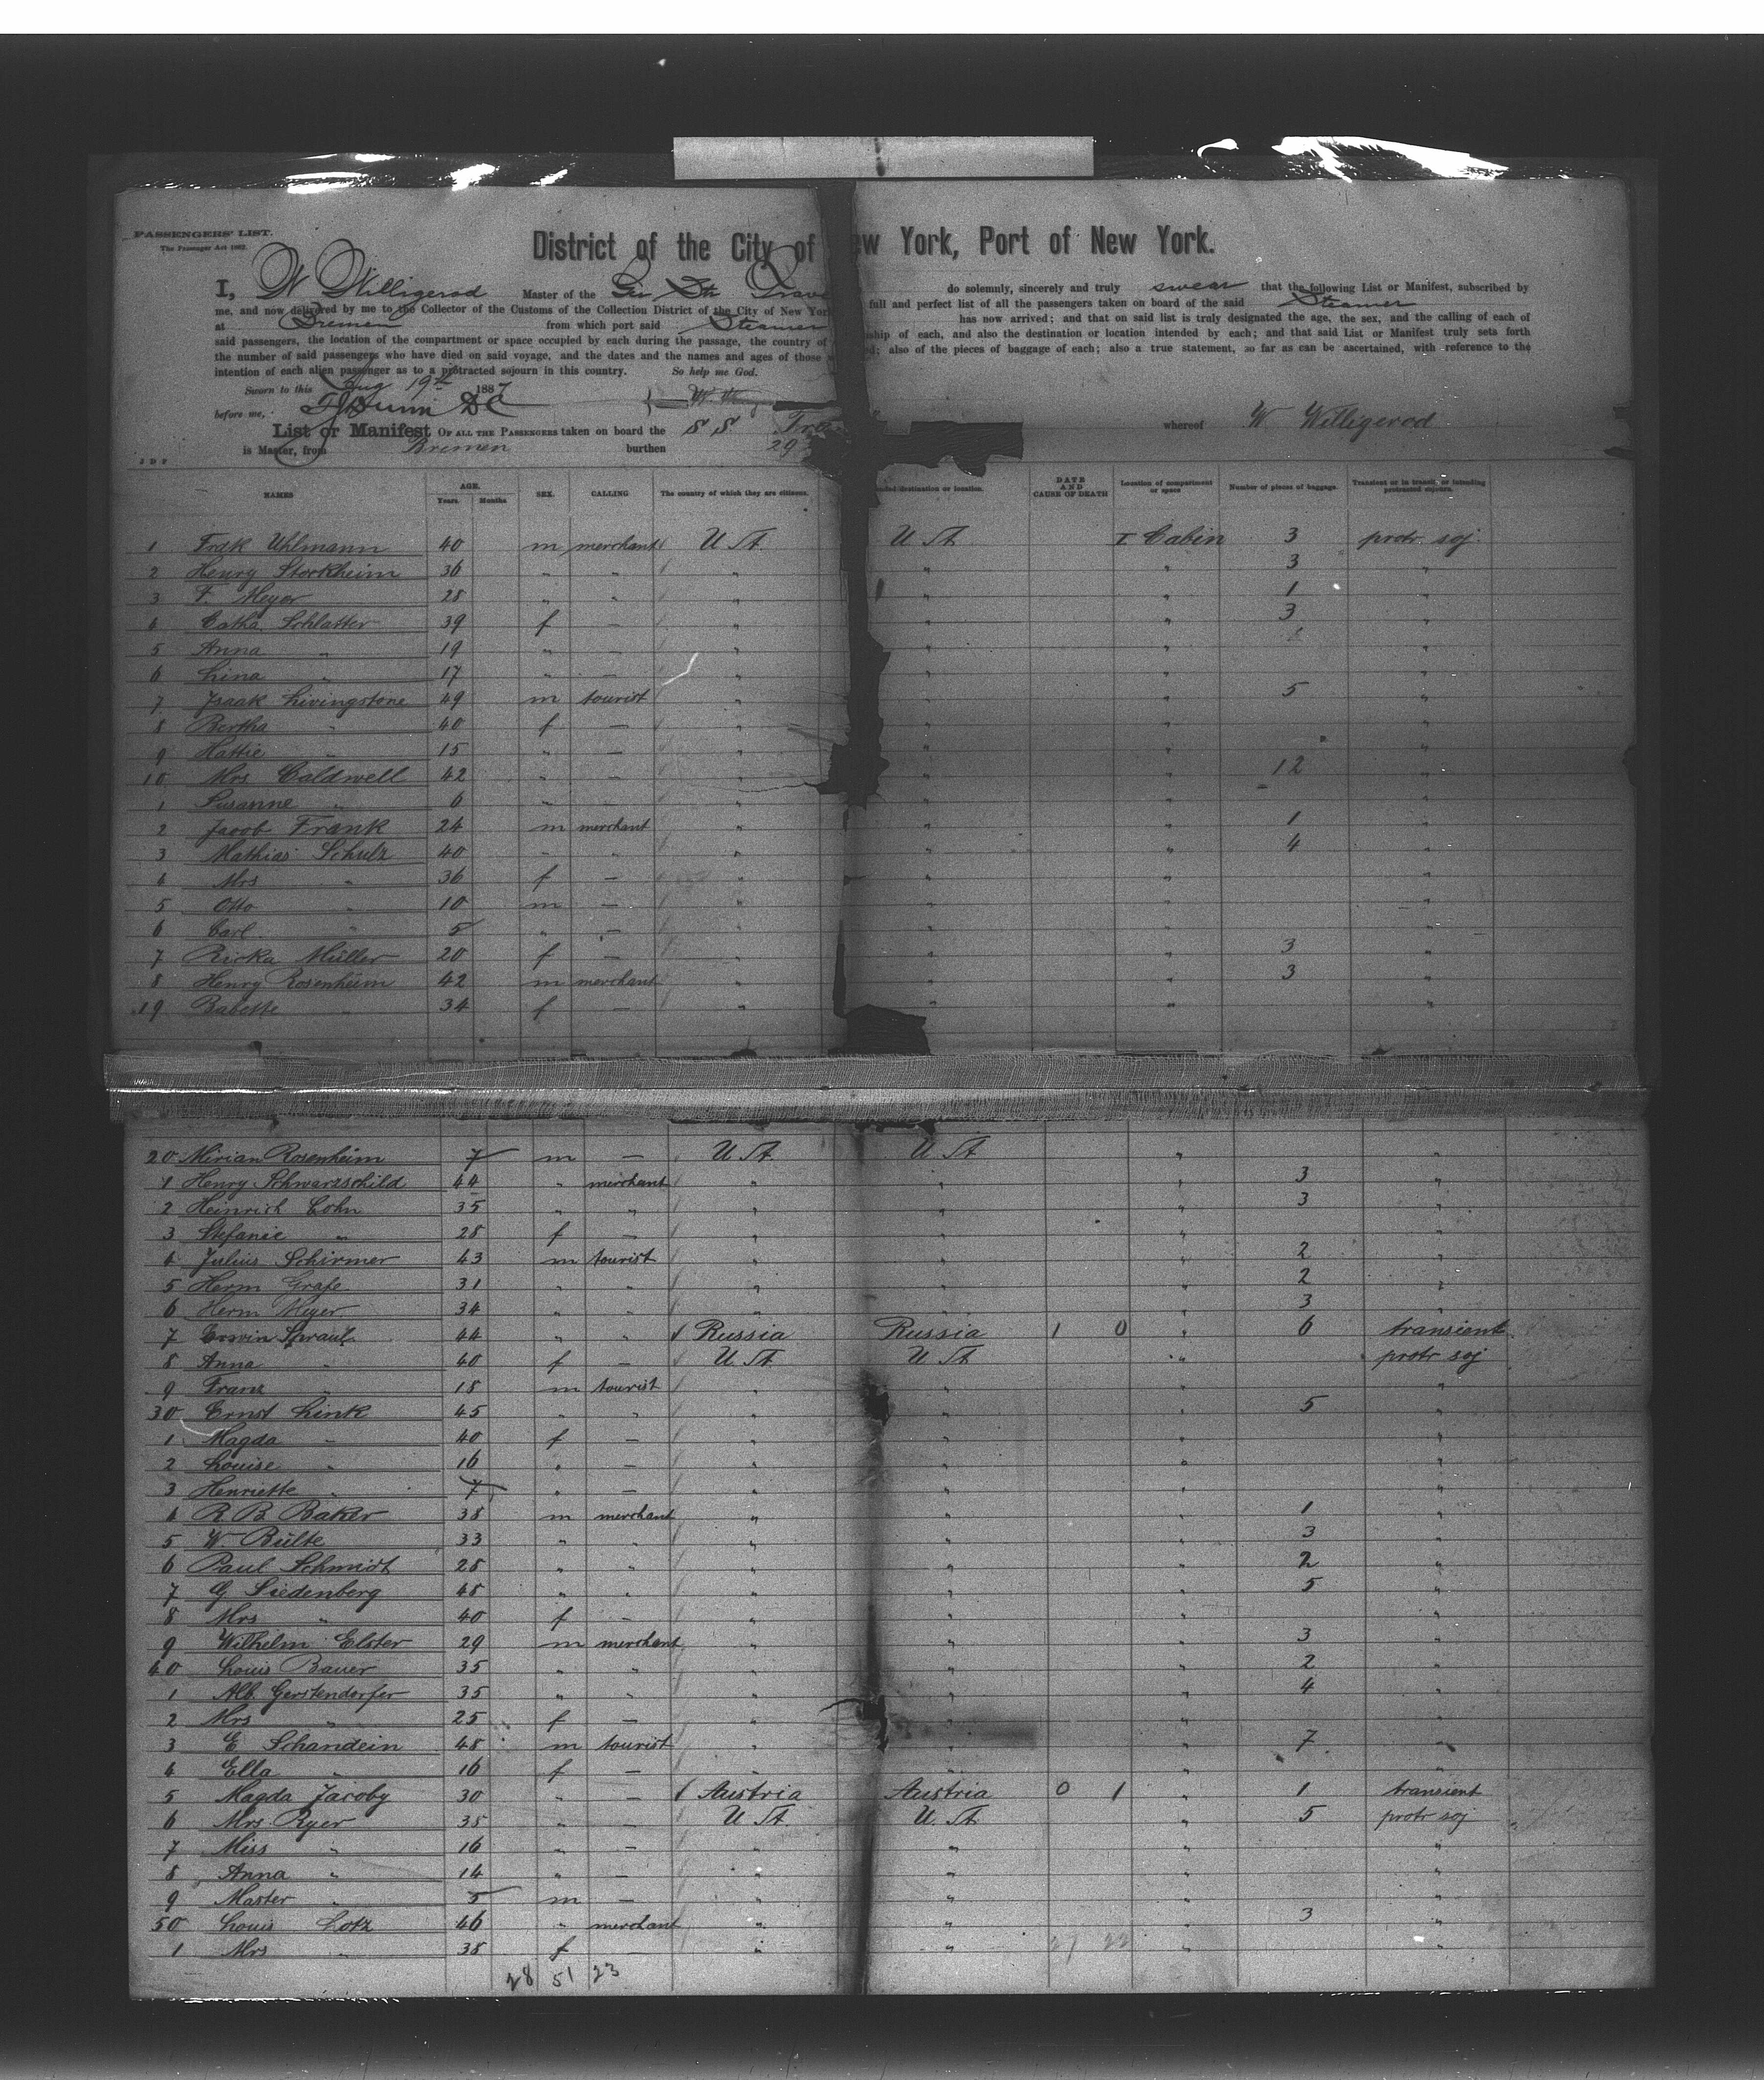 PASSENGERS' LIST.
The Passenger Act 1882.
District of the City of New York, Port of New York.
I, W Willigerod Master of the Ger Str Trave do solemnly, sincerely and truly swear that the following List or Manifest, subscribed by
me, and now delivered by me to the Collector of the Customs of the Collection District of the City of New York full and perfect list of all the passengers taken on board of the said Steamer
at Bremen from which port said Steamer has now arrived; and that on said list is truly designated the age, the sex, and the calling of each of
said passengers, the location of the compartment or space occupied by each during the passage, the country of ship of each, and also the destination or location intended by each; and that said List or Manifest truly sets forth
the number of said passengers who have died on said voyage, and the dates and the names and ages of those also of the pieces of baggage of each; also a true statement, so far as can be ascertained, with reference to the
intention of each alien passenger as to a protracted sojourn in this country. So help me God.
Sworn to this Aug 19th 1887
before me, whereof W Willigerod
List or Manifest OF ALL THE PASSENGERS taken on board the S S
is Master, from Bremen burthen
NAMES AGE. Years. Months SEX. CALLING The country of which they are citizens. destination or location. DATE AND CAUSE OF DEATH Location of compartment or space Number of pieces of baggage. Transient or in transit, or intending protracted sojourn.
1 Fredk Uhlmann 40 m merchant U St U St I. Cabin 3 protr. soj.
2 Henry Storkheim 36 " " " " " 3 "
3 F. Meyer 28 " " " " " 1 "
4 Catha. Schlatter 39 f — " " " 3 "
5 Anna " 19 " — " " " "
6 Lina " 17 " — " " " "
7 Isaak Livingstone 49 m tourist " " " 5 "
8 Bertha " 40 f — " " " "
9 Hattie " 15 " — " " " "
10 Mrs Caldwell 42 " — " " " 12 "
1 Susanne " 6 " — " " " "
2 Jacob Frank 24 m merchant " " " 1 "
3 Mathias Schulz 40 " " " " " 4 "
4 Mrs " 36 f — " " " "
5 Otto " 10 m — " " " "
6 Carl " 5 " — " " " "
7 Ricka Müller 20 f — " " " 3 "
8 Henry Rosenheim 42 m merchant " " " 3 "
19 Babette " 34 f — " " " "
20 Mirian Rosenheim 7 m — U St. U St " "
1 Henry Schwarzschild 44 " merchant " " " 3 "
2 Heinrich Cohn 35 " " " " " 3 "
3 Stefanie " 28 f — " " " "
4 Julius Schirmer 43 m tourist " " " 2 "
5 Herm Grafe 31 " " " " " 2 "
6 Herm Meyer 34 " " " " " 3 "
7 44 " " Russia Russia 1 0 " 6 transient
8 Anna " 40 f — U St. U St " protr soj
9 Franz " 18 m tourist " " " "
30 Ernst Link 45 " " " " " 5 "
1 Magda " 40 f — " " " "
2 Louise " 16 " — " " " "
3 Henriette " 7 " — " " " "
4 R B Baker 38 m merchant " " " 1 "
5 W Bülte 33 " " " " " 3 "
6 Paul Schmidt 28 " " " " " 2 "
7 G Siedenberg 48 " " " " " 5 "
8 Mrs " 40 f — " " " "
9 Wilhelm Elster 29 m merchant " " " 3 "
40 Louis Bauer 35 " " " " " 2 "
1 Alb. Gerstendorfer 35 " " " " " 4 "
2 Mrs " 25 f — " " " "
3 E Schandein 48 m tourist " " " 7 "
4 Ella " 16 f — " " " "
5 Magda Jacoby 30 " — Austria Austria 0 1 " 1 transient
6 Mrs. Ryer 35 " — U St. U. St. " 5 protr soj
7 Miss " 16 " — " " " "
8 Anna " 14 " — " " " "
9 Master " 5 m — " " " "
50 Louis Lotz 46 " merchant " " " 3 "
1 Mrs " 38 f — " " 27 22 " "
28 51 23